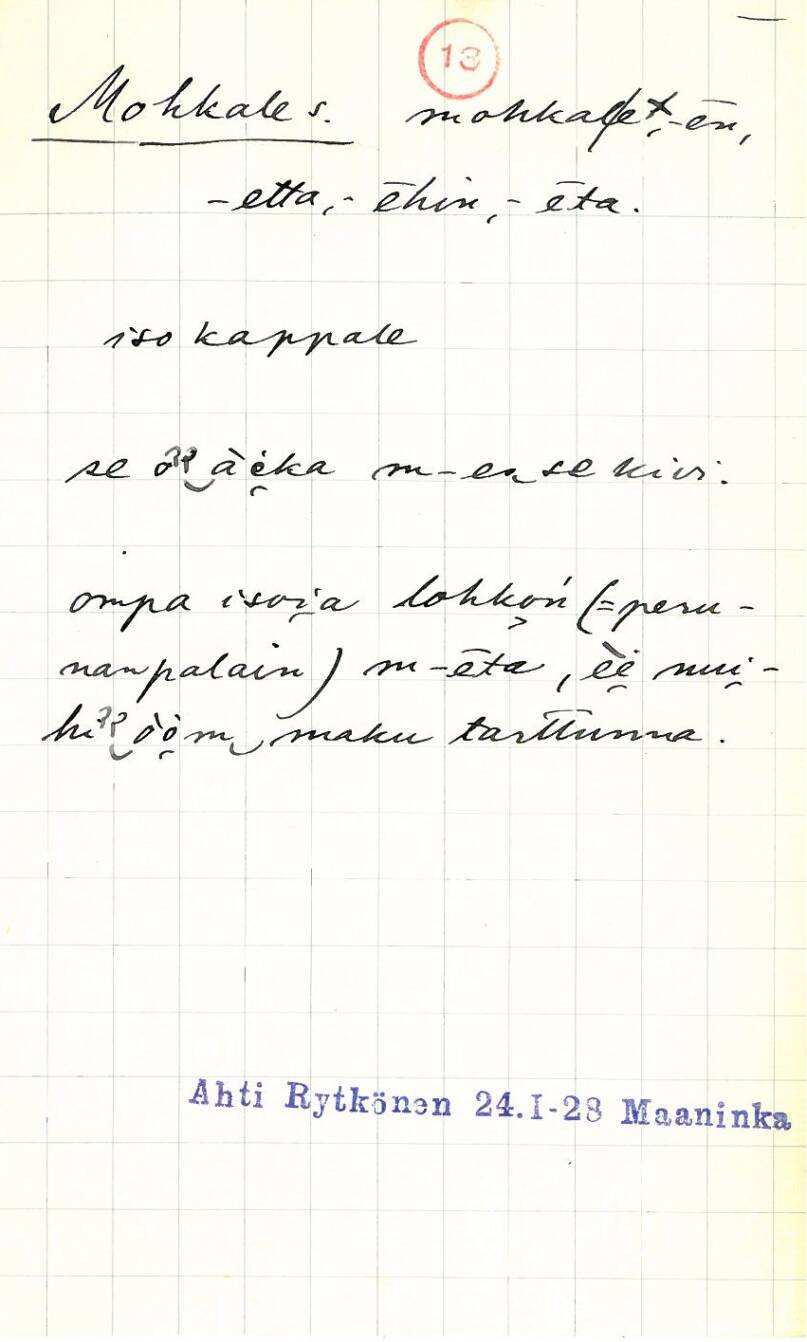 13
Mohkale s. mohkale̬x, -ēn,
-etta, -ēhin, -ēta.
iso kappale
se oˀ‿ài̯ka m-en‿se kivi.
ompa isoi̯a lohkoń (=peru-
nanpalain) m-ēta, èi̯ mui̯-
hiˀ‿òo̯m‿maku tarttunna.
Ahti Rytkönen 24.I-28 Maaninka